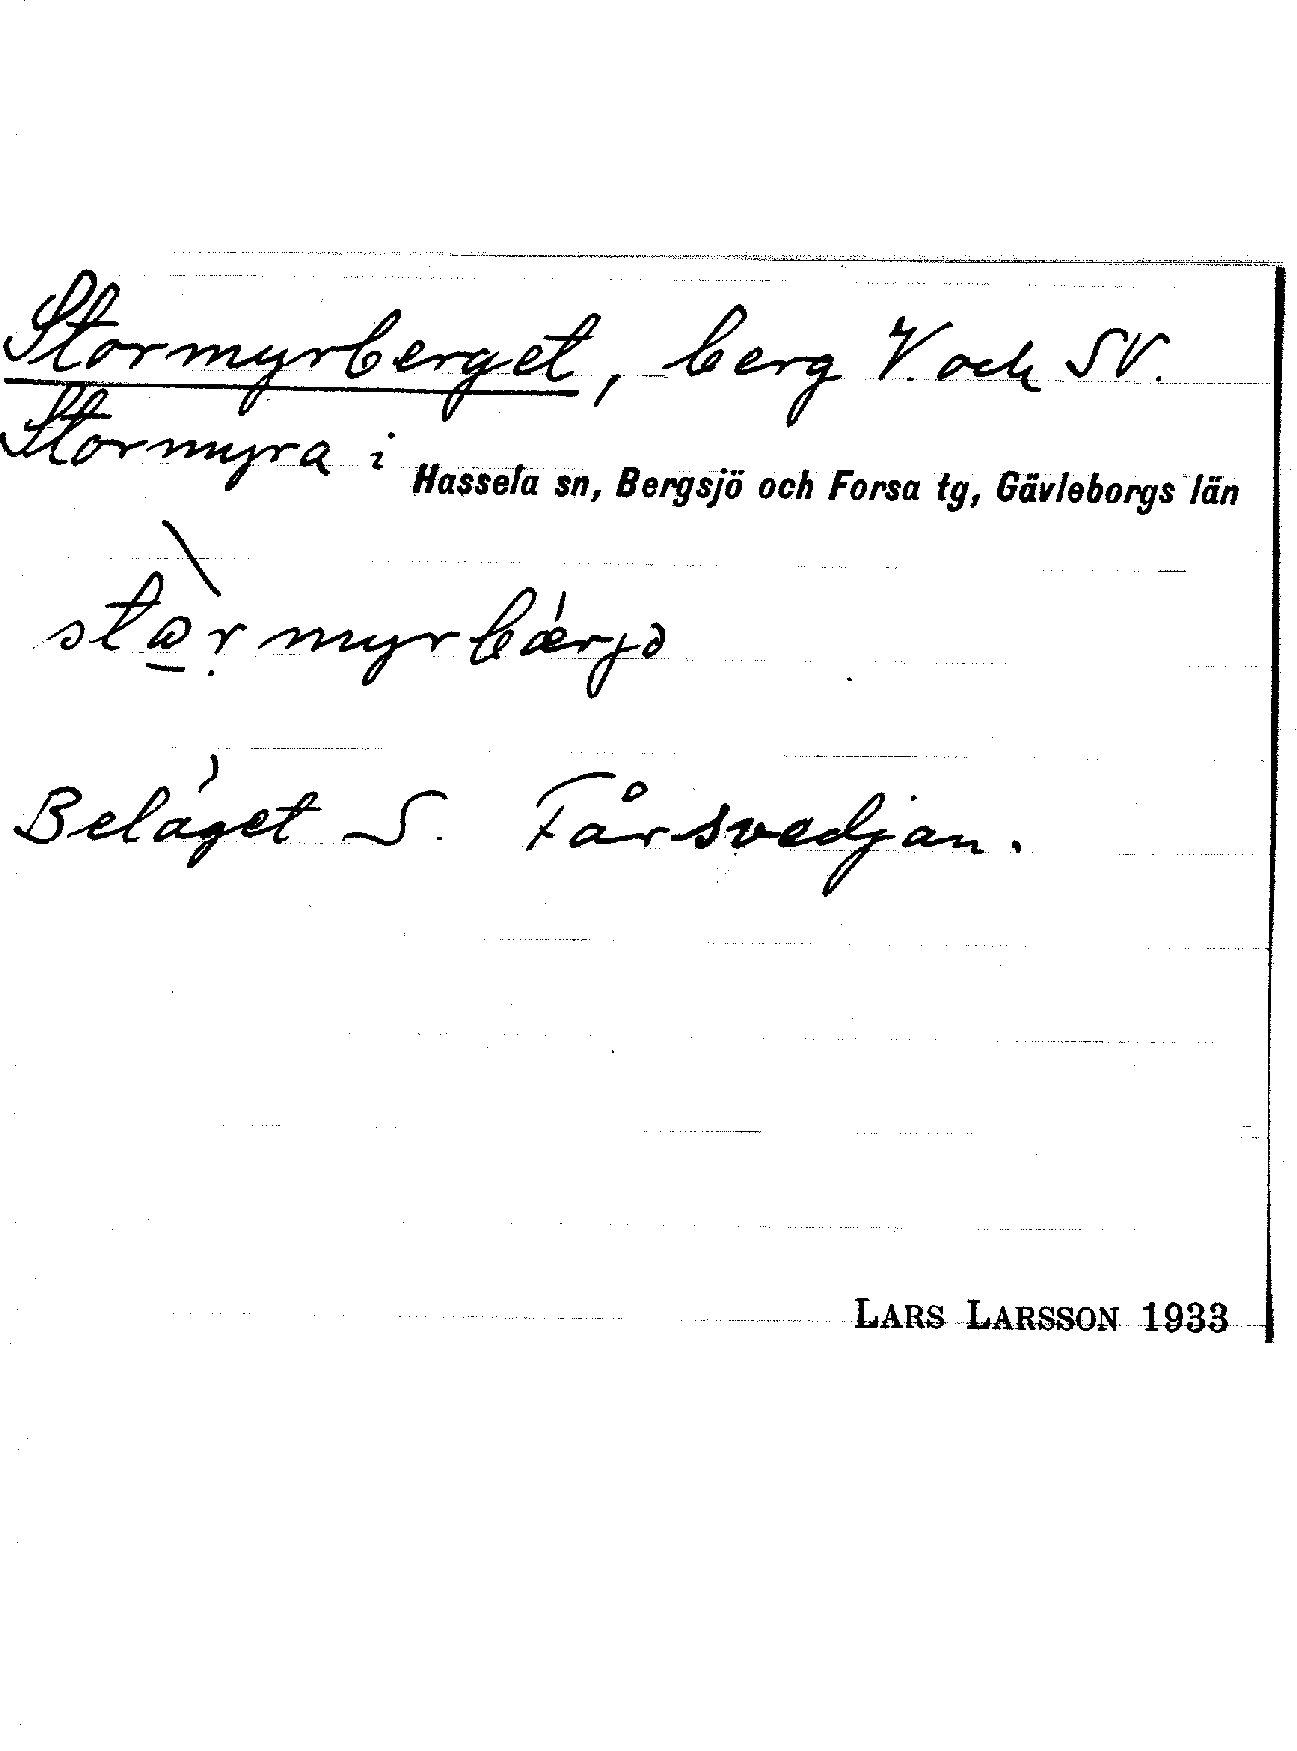 Stormyrberget, berg V. och SV.
Stormyra i Hassela sn, Bergsjö och Forsa tg, Gävleborgs län
Beläget S. Fårsvedjan.
LARS LARSSON 1933